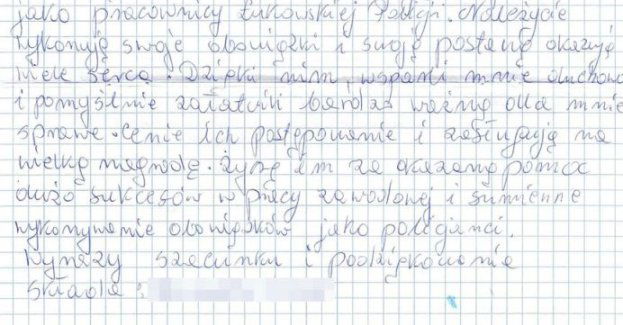 jako pracownicy Łukowskiej Policji. Należycie
wykonują swoje obowiązki i swoją postawą okazują
wiele serca. Dzięki nim, wsparli mnie duchowo
i pomyślnie załatwili bardzo ważną dla mnie
sprawę. Cenię ich postępowanie i zasługują na
wielką nagrodę. Życzę im za okazaną pomoc
dużo sukcesów w pracy zawodowej i sumienne
wykonywanie obowiązków jako policjanci.
Wyrazy szacunku i podziękowanie
składa: